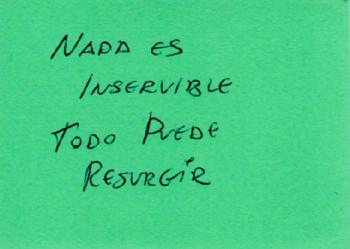 NADA ES
INSERVIBLE
TODO PUEDE
RESURGIR